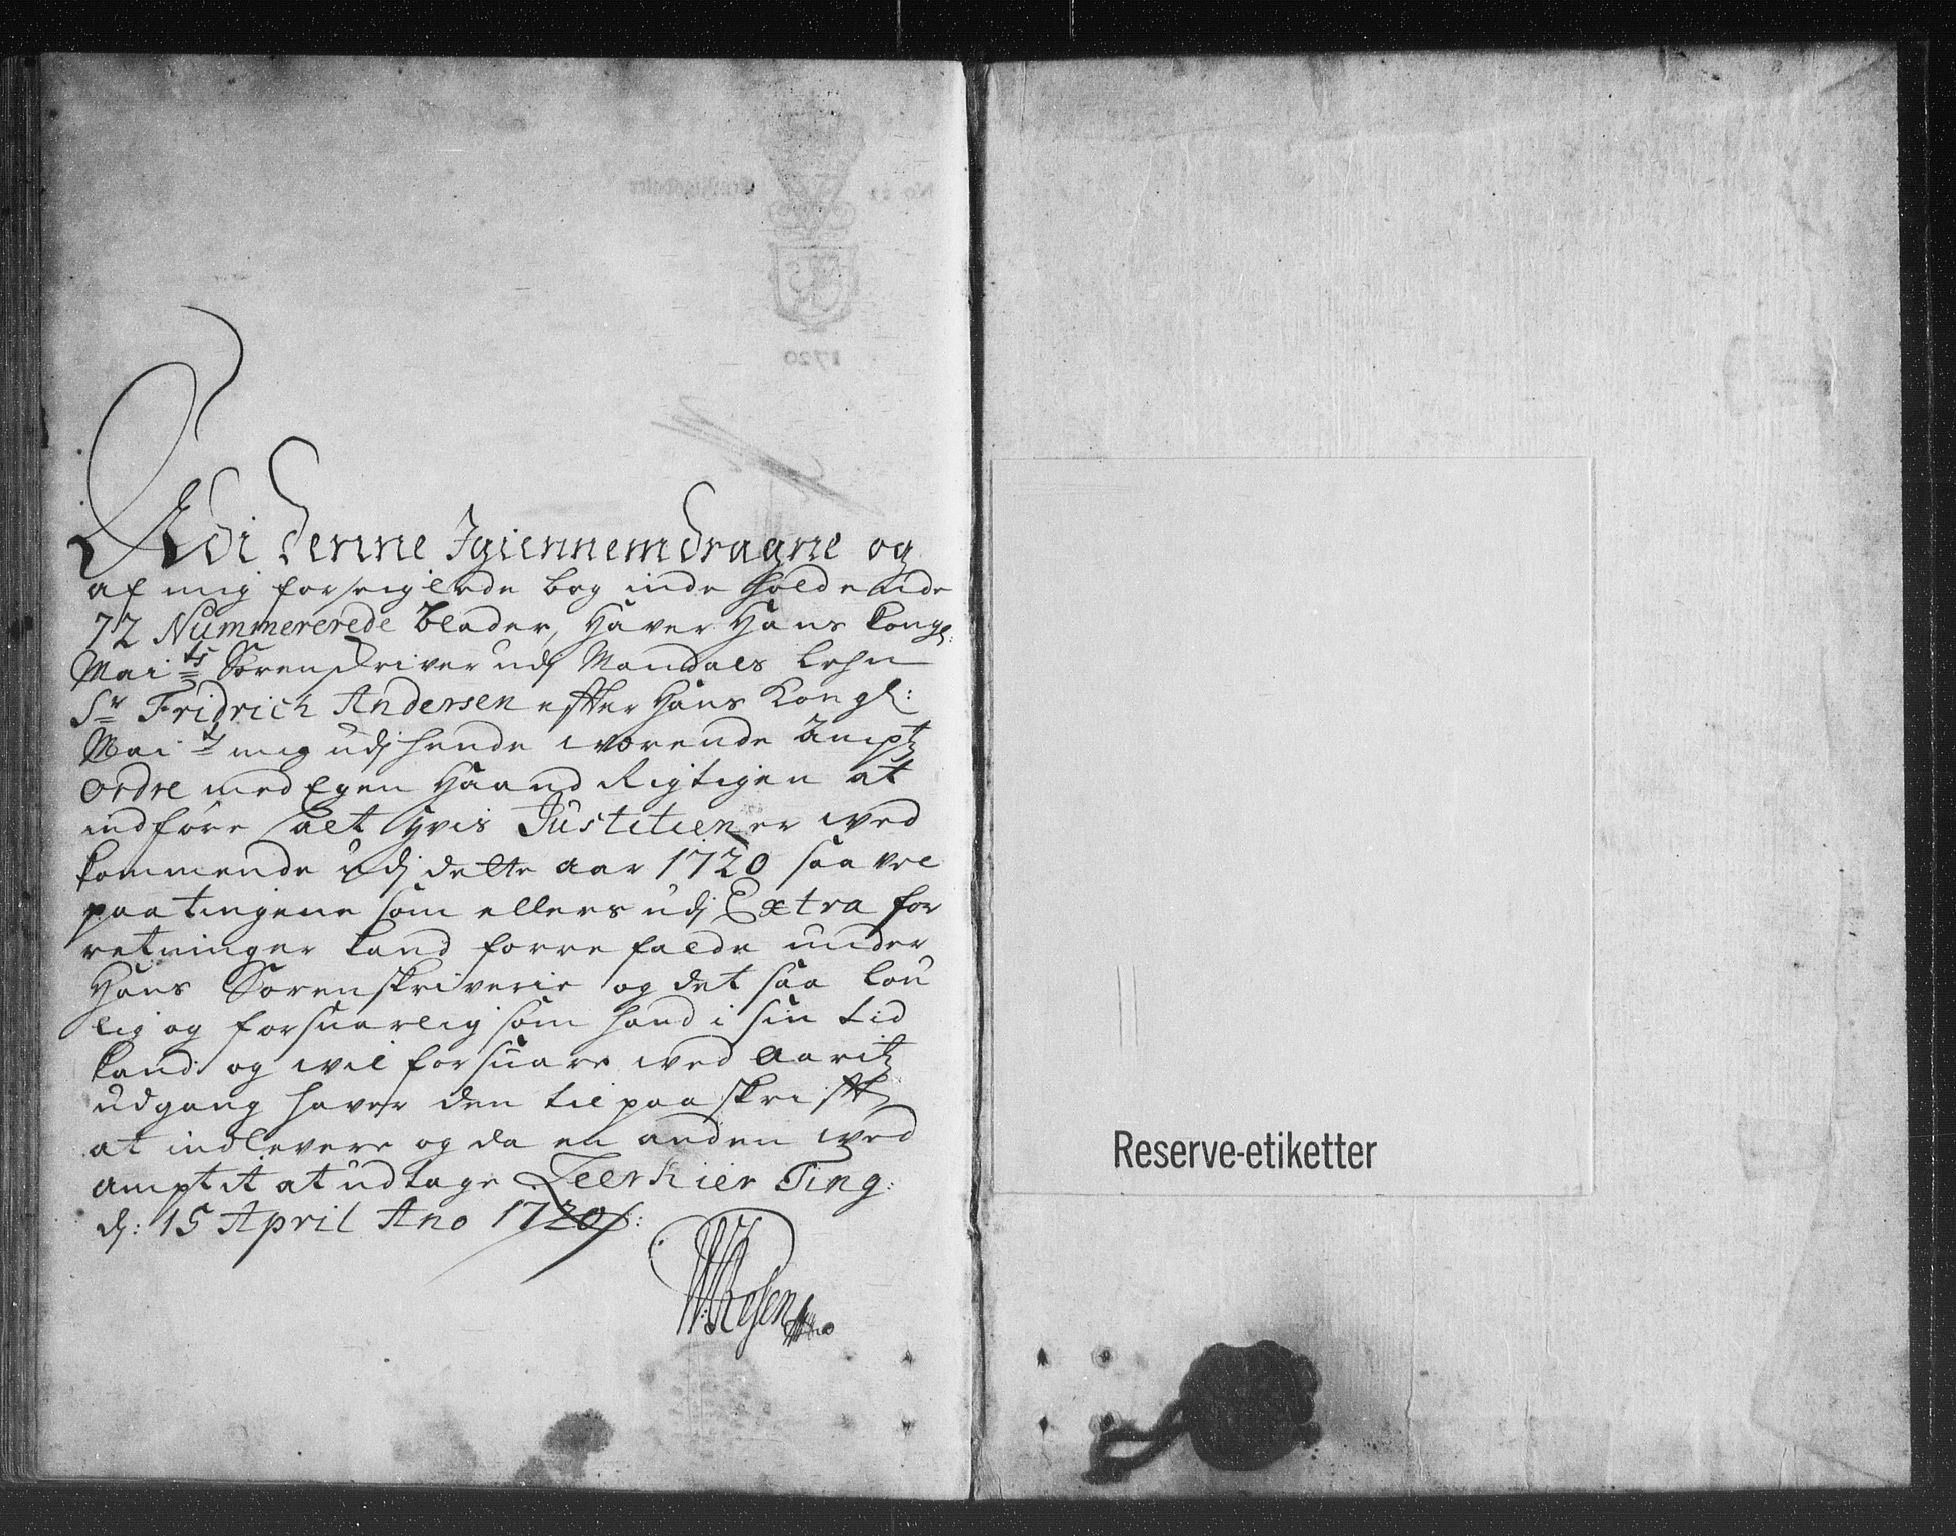 Udi denne Igiennemdragne og
af mig forseiglede bog inde holdende
72 Nummererede blader, Haver Hans Kongl:
Maits Sorenskriver udj Mandals Lehn
Sr Fridrich Andersen efter Hans Kongl:
Maits mig udj hende worende Ampts
Ordre med Egen Haand Rigtigen at
indföre alt hvis Justitien er wed
kommende udj dette aar 1720 saa vel
paa tingene som ellers udj Extra for
retninger kand forrefalde under
Hans Sorenskriverie og det saa lou
lig og forsuarlig som hand i sin tid
kand og wil forsuare wed Aaritz
udgang haver den til paaskrifft
at indlevere og da en anden wed
amptit at udtage Leerkier Ting:
dj: 15 April Ano 1720
Resen
Reserve-etiketter
No
1720